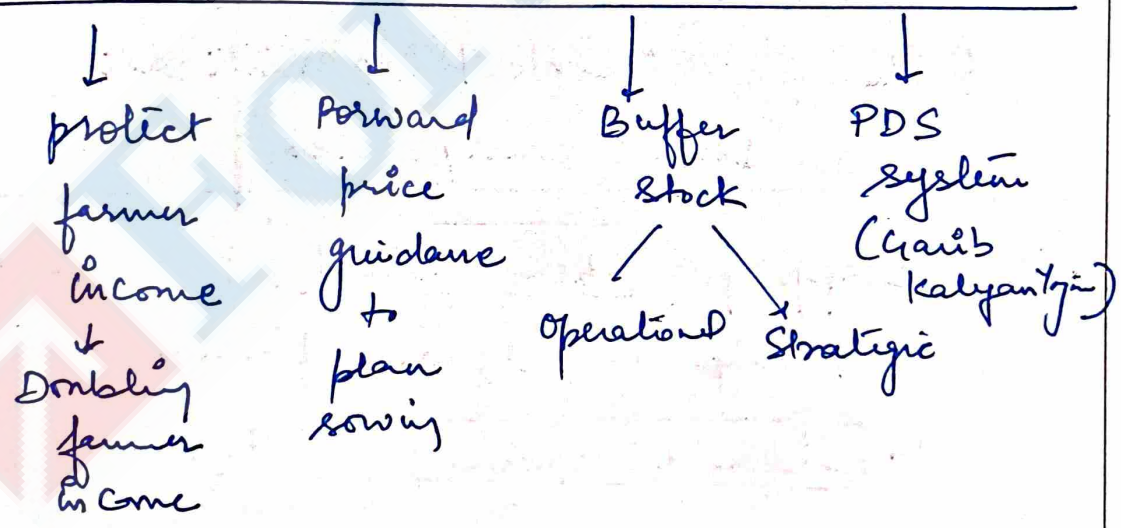 protect
farmer
income
Doubling
farmer
income
Forward
price
guidance
to
plan
sowing
Buffer
Stock
Operational
Strategic
PDS
system
(Garib
Kalyan Yojn)